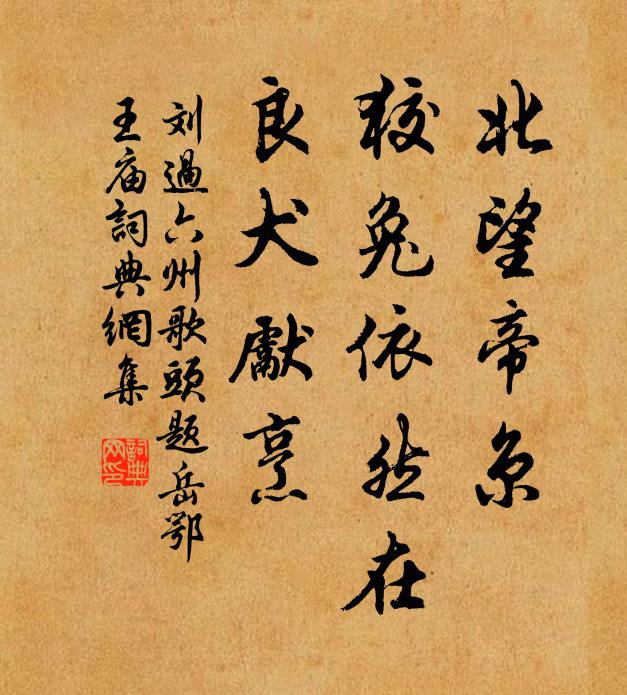 北望帝京
狡兔依然在
良犬獻烹
刘過六州歌頭题岳鄂
王庙詞典網集
詞典
网印